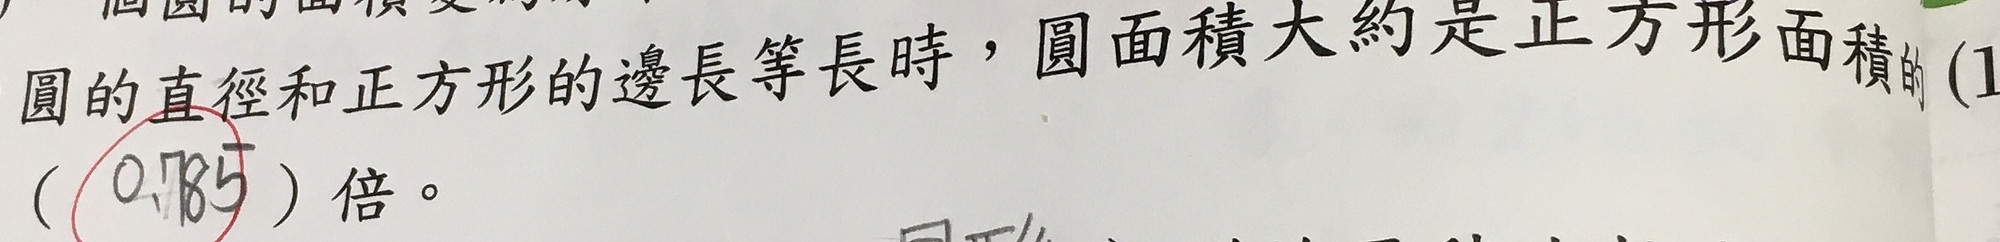 圓的直徑和正方形的邊長等長時，圓面積大約是正方形面積的
(1
（0.785）倍。